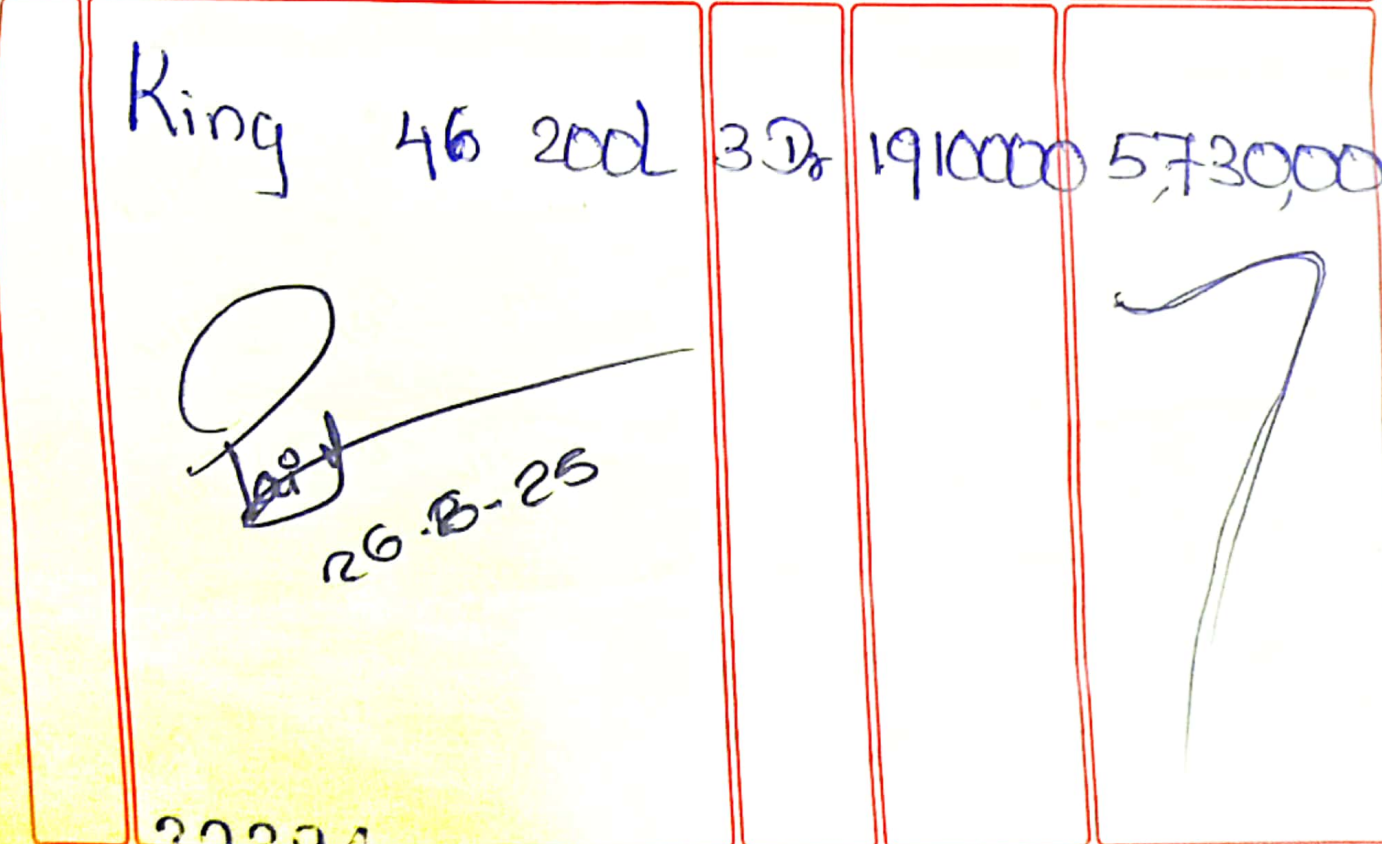 King 46 200L 3 Dr 1910000 5,730,00
26-8-25